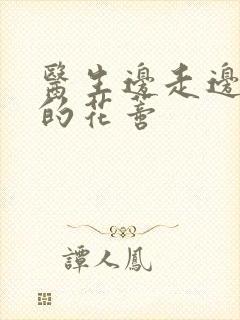 醫生邊走邊
的花蕾
譚人鳳